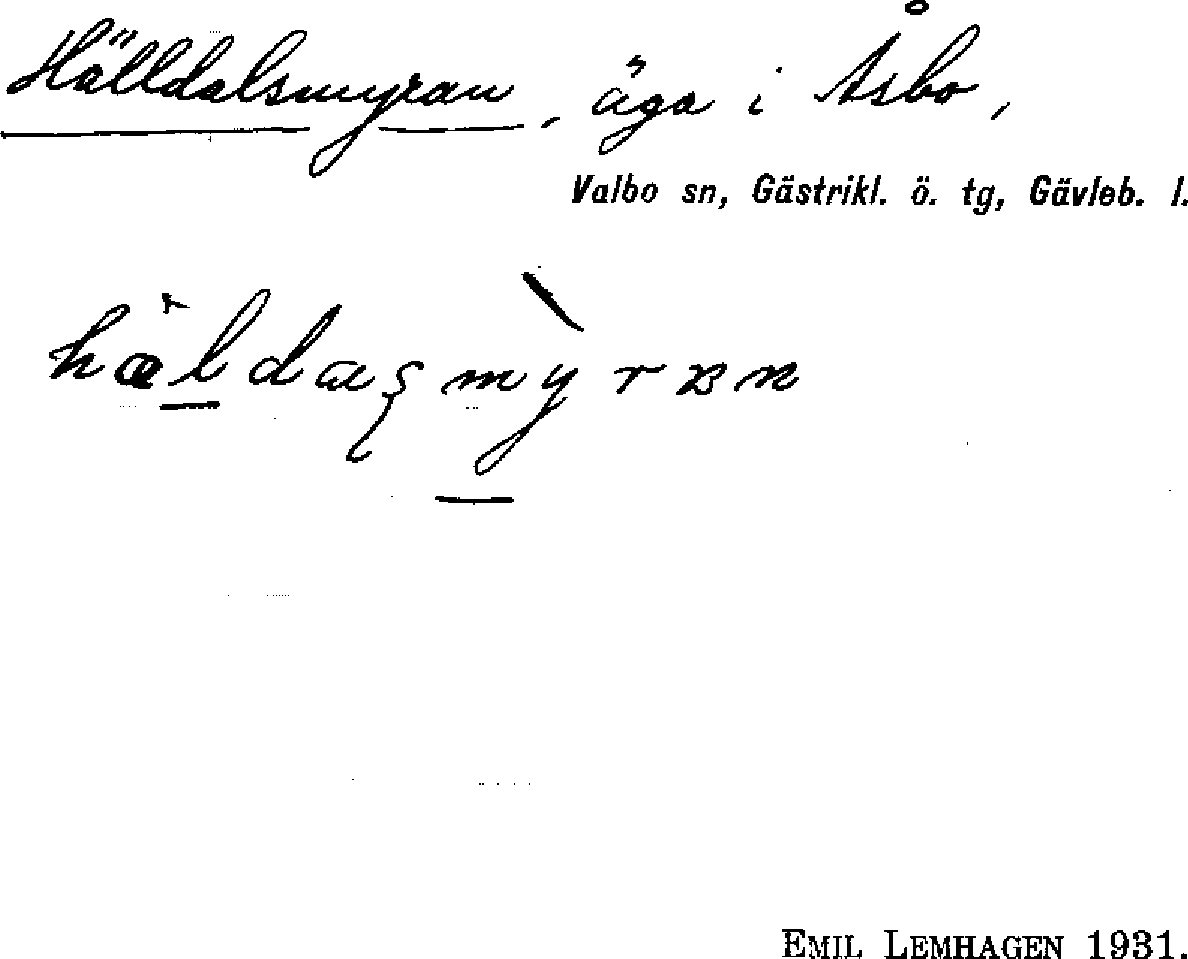 Hälldalsmyran, äga i Åsbo,
Valbo sn, Gästrikl. ö. tg, Gävleb. l.
hældaʂmỳrɐn
EMIL LEMHAGEN 1931.